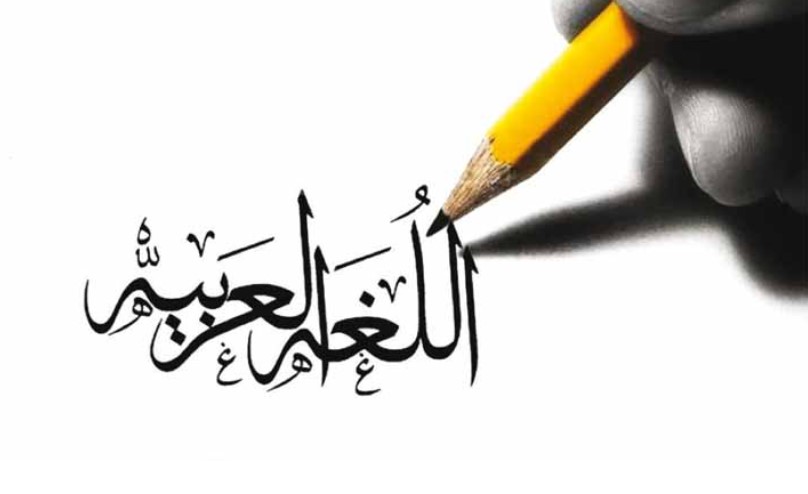 اللُغَه العرَبيّه